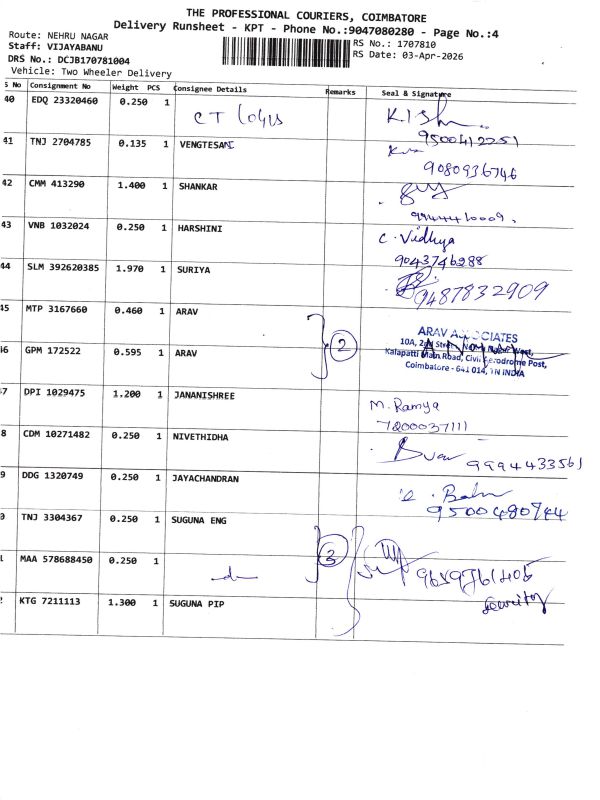 THE PROFESSIONAL COURIERS, COIMBATORE
Delivery Runsheet - KPT - Phone No.:9047080280 - Page No.:4
Route: NEHRU NAGAR
RS No.: 1707810
Staff: VIJAYABANU
RS Date: 03-Apr-2026
DRS No.: DCJB170781004
Vehicle: Two Wheeler Delivery
S No Consignment No Weight PCS Consignee Details Remarks Seal & Signature
40 EDQ 23320460 0.250 1 CT
9500412251
41 TNJ 2704785 0.135 1 VENGTESAN
9080936746
42 CMM 413290 1.400 1 SHANKAR
9944410009.
43 VNB 1032024 0.250 1 HARSHINI C. Vidhya
9043746288
44 SLM 392620385 1.970 1 SURIYA
9487832909
45 MTP 3167660 0.460 1 ARAV
2
ARAV ASSOCIATES
10A, 2nd Street,
Kalapatti Main Road, Civil Aerodrome Post,
Coimbatore - 641 014, TN INDIA
46 GPM 172522 0.595 1 ARAV
7 DPI 1029475 1.200 1 JANANISHREE M. Ramya
7200037111
8 CDM 10271482 0.250 1 NIVETHIDHA
9994433561
9 DDG 1320749 0.250 1 JAYACHANDRAN
9500480744
0 TNJ 3304367 0.250 1 SUGUNA ENG
3
1 MAA 578688450 0.250 1
2 KTG 7211113 1.300 1 SUGUNA PIP Security